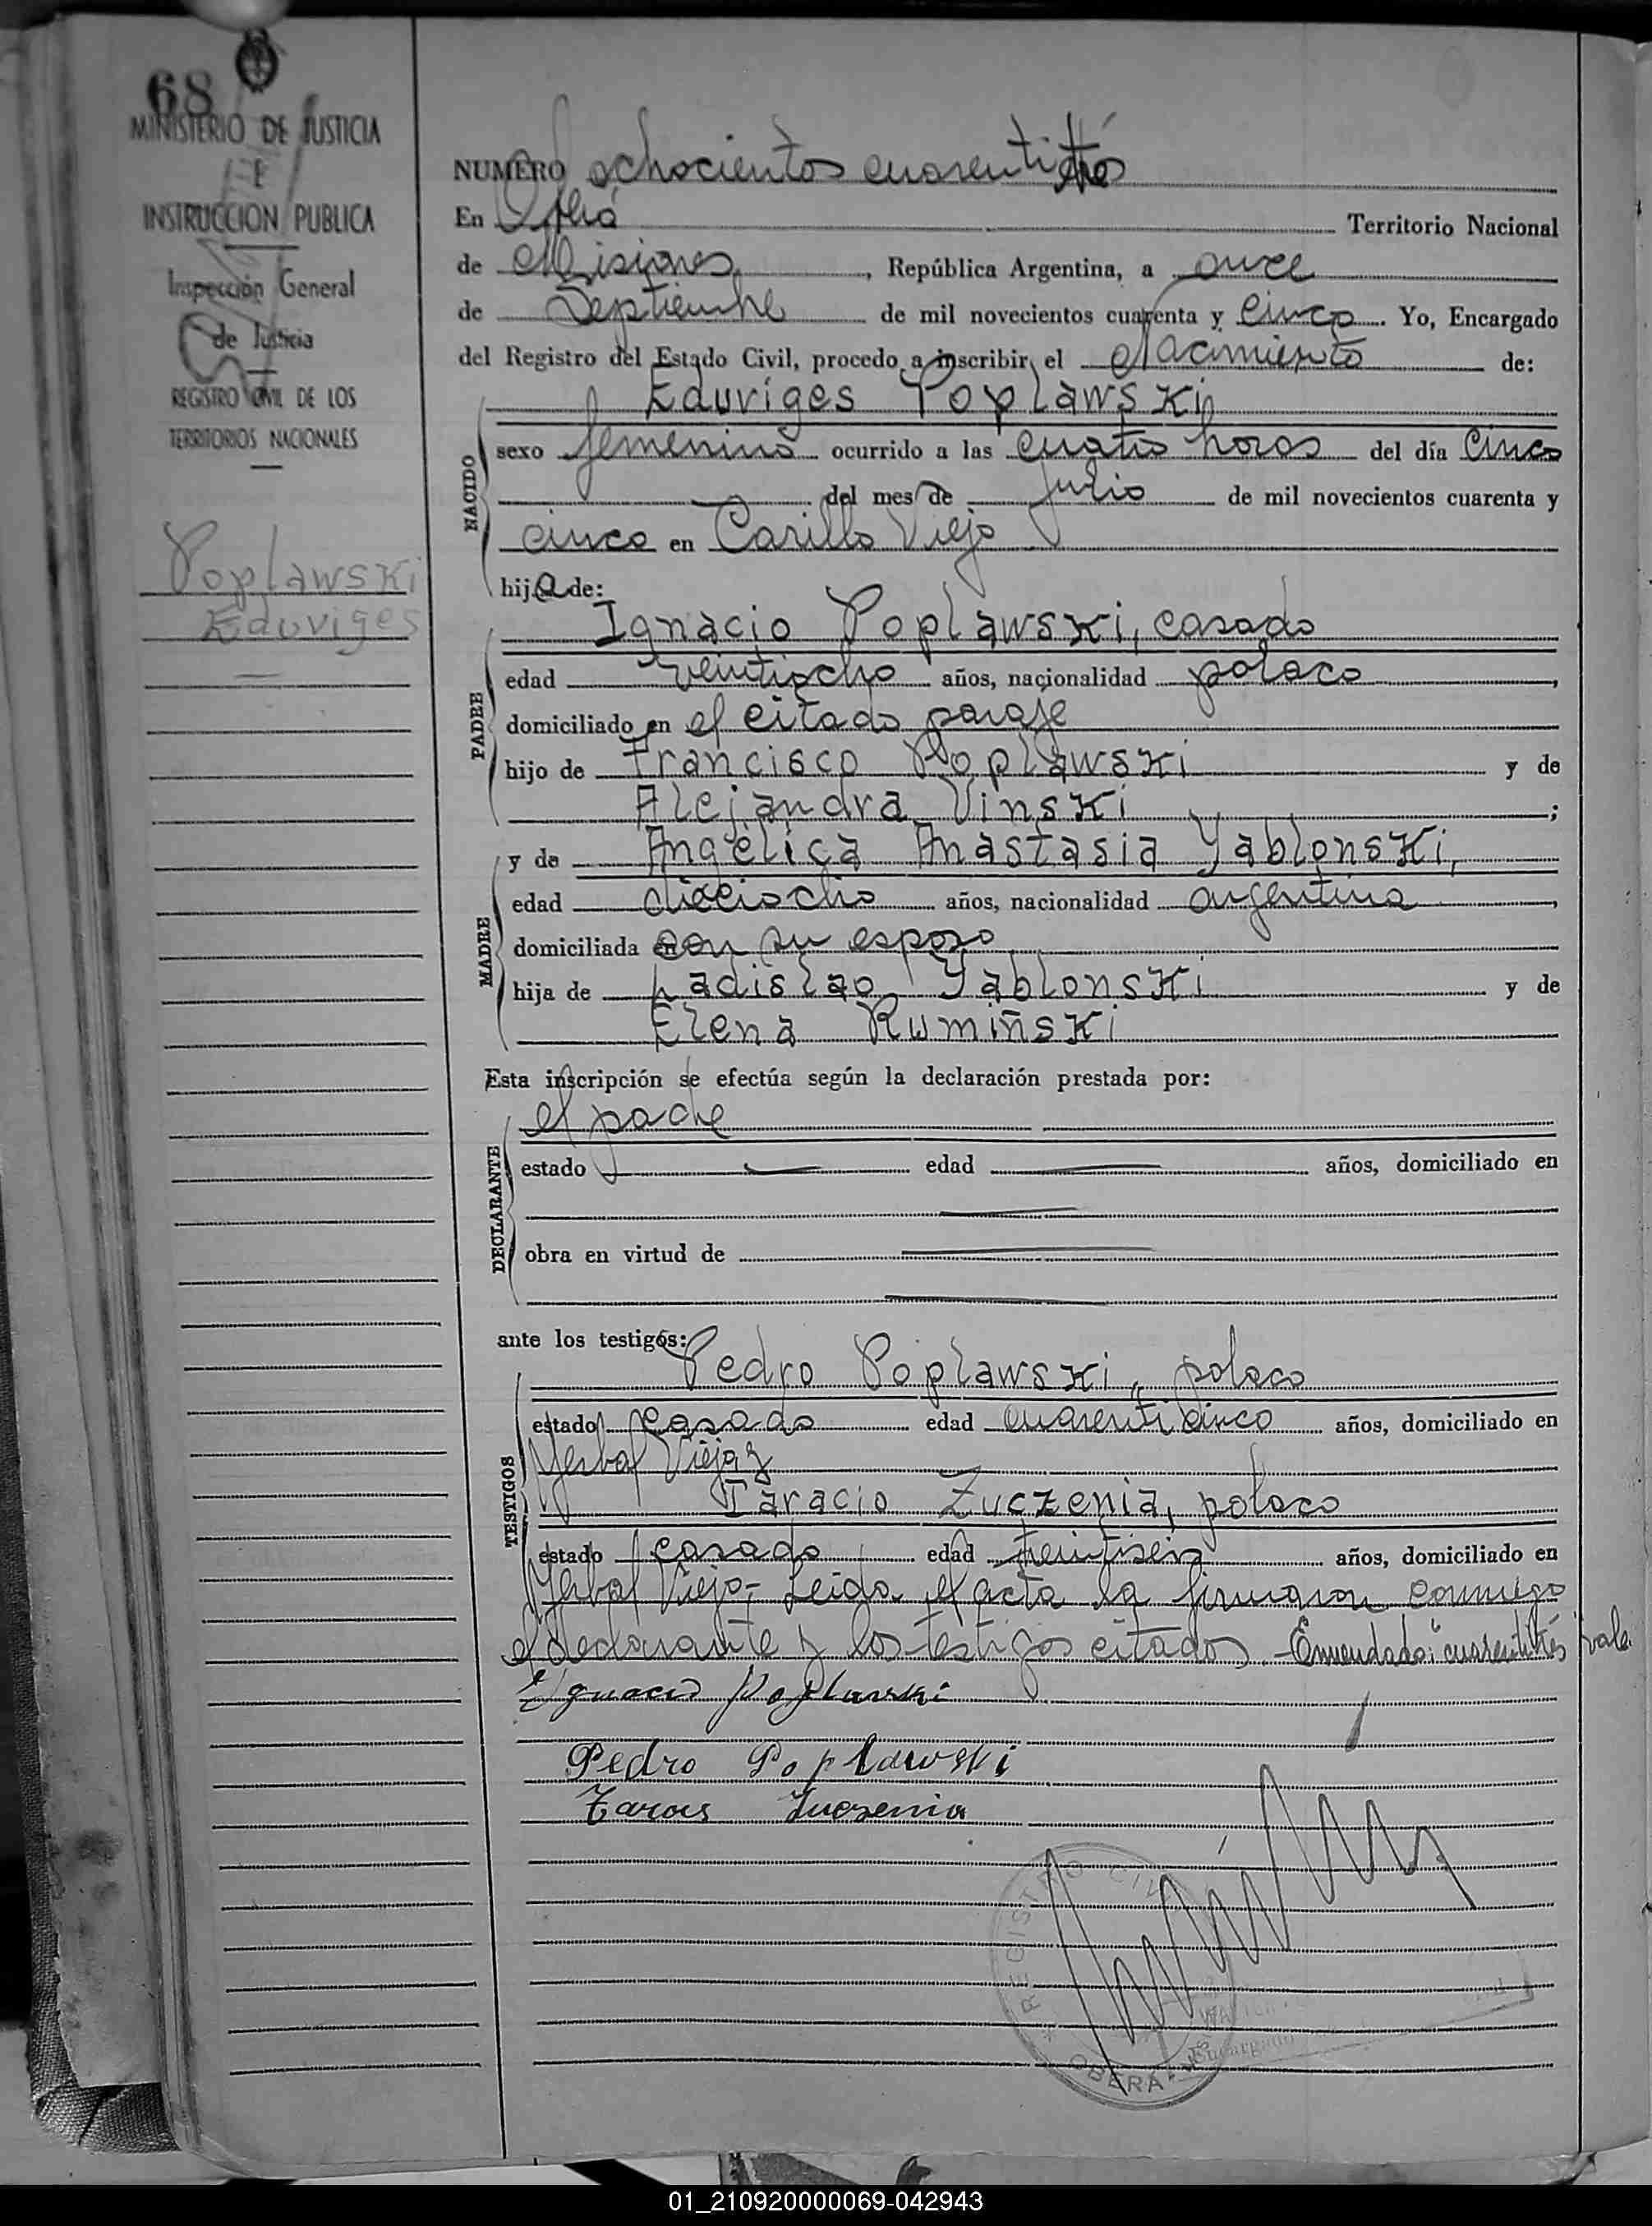 68
MINISTERIO DE JUSTICIA
E
INSTRUCCION PUBLICA
Inspección General
de Justicia
REGISTRO CIVIL DE LOS
TERRITORIOS NACIONALES
Poplawski
Eduviges
NUMERO ochocientos cuarentitrés
En Oberá Territorio Nacional
de Misiones, República Argentina, a once
de Septiembre de mil novecientos cuarenta y cinco. Yo, Encargado
del Registro del Estado Civil, procedo a inscribir el Nacimiento de:
Eduviges Poplawski
NACIDO
sexo femenino ocurrido a las cuatro horas del día cinco
del mes de Julio de mil novecientos cuarenta y
cinco en Carillo Viejo
hija de:
Ignacio Poplawski, casado
PADRE
edad veintiocho años, nacionalidad polaco,
domiciliado en el citado paraje
hijo de Francisco Poplawski y de
Alejandra Vinski;
y de Angélica Anastasia Yablonski,
MADRE
edad dieciocho años, nacionalidad argentina,
domiciliada con su esposo
hija de Ladislao Yablonski y de
Elena Rumiñski
Esta inscripción se efectúa según la declaración prestada por:
el padre
DECLARANTE
estado edad años, domiciliado en
obra en virtud de
ante los testigos:
Pedro Poplawski, polaco
TESTIGOS
estado casado edad cuarenticinco años, domiciliado en
Yerbal Viejo y
Taracio Zuczenia, polaco
estado casado edad treintiseis años, domiciliado en
Yerbal Viejo,- Leída el acta la firmaron conmigo
el declarante y los testigos citados.-Enmendado: "cuarentitrés" vale.
Ignacio Poplawski
Pedro Poplawski
Taras Zuczenia
REGISTRO CIVIL
OBERÁ
Encargado
01_210920000069-042943